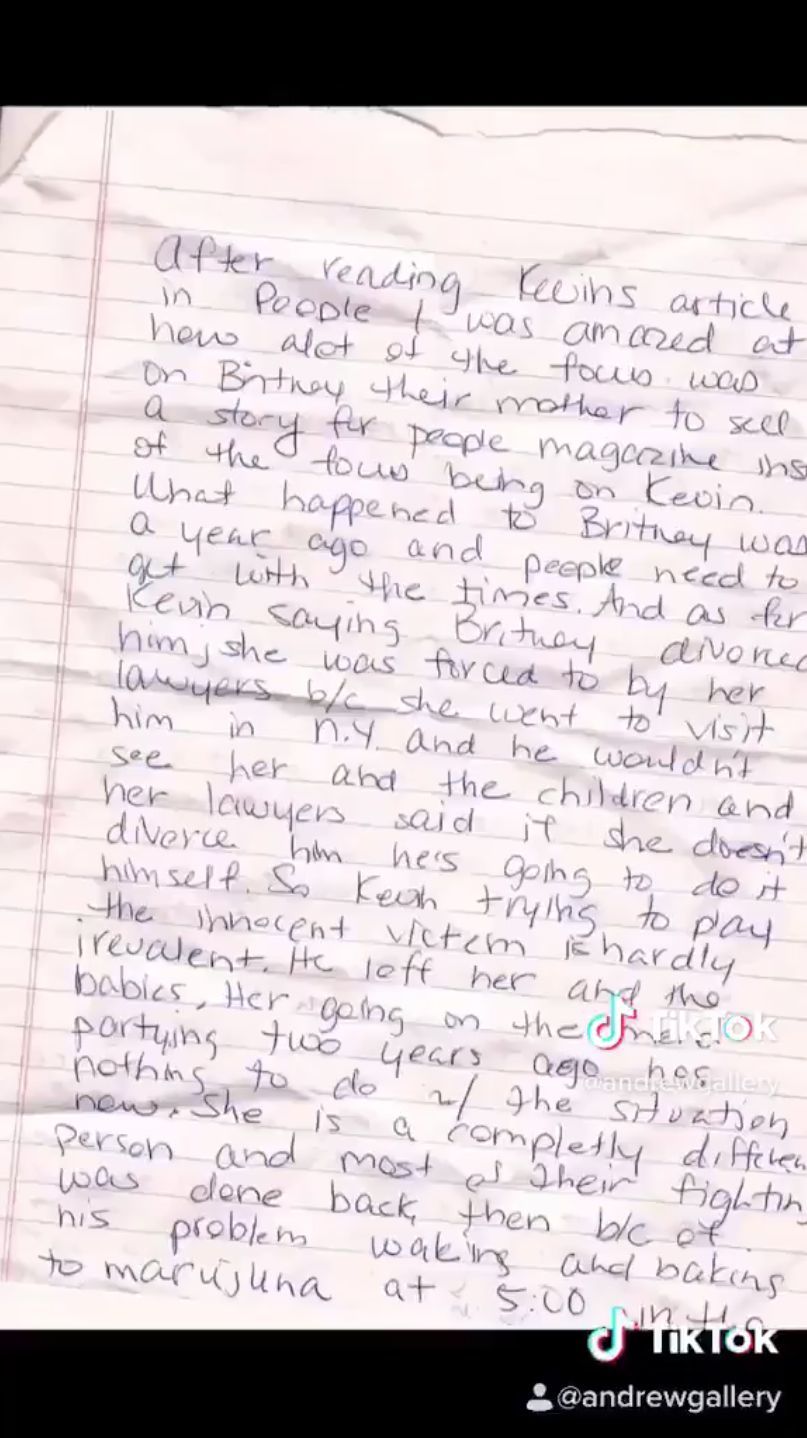 After reading Kevins article
in People I was amazed at
how alot of the focus was
on Britney their mother to sell
a story for people magazine ins
of the focus being on Kevin.
What happened to Britney was
a year ago and people need to
get with the times. And as for
Kevin saying Britney divorced
him, she was forced to by her
lawyers b/c she went to visit
him in N.Y. and he wouldn't
see her and the children and
her lawyers said if she doesn't
divorce him he's going to do it
himself. So Kevin trying to play
the innocent victem is hardly
irevalent. He left her and the
babies. Her going on the
partying two years ago has
nothing to do w/ the situation
now. She is a completly differen
person and most of their fightin
was done back then b/c of
his problem waking and baking
to marujuna at 5:00 in the
TikTok
@andrewgallery
TikTok
@andrewgallery